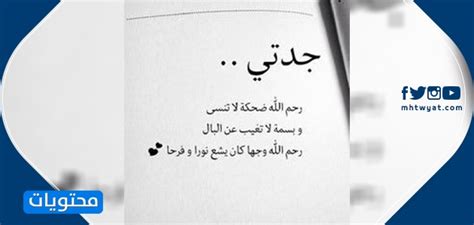 جدتي ..
رحم الله ضحكة لا تنسى
و بسمة لا تغيب عن البال
رحم الله وجها كان يشع نورا و فرحا
mhtwyat.com
محتويات